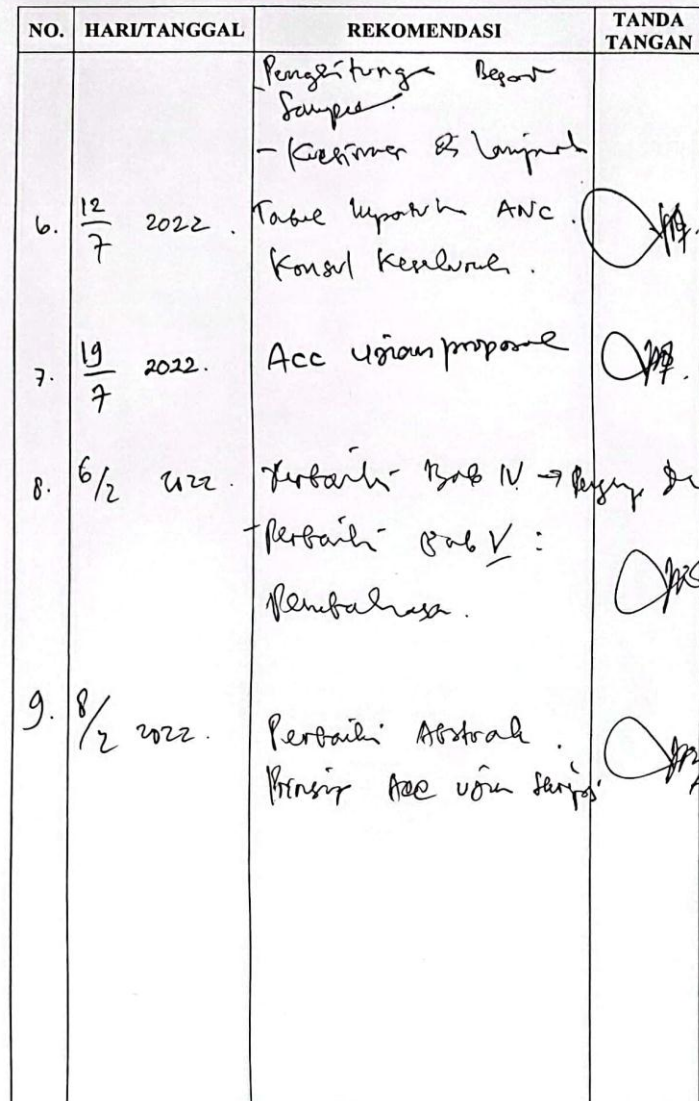 NO. HARI/TANGGAL REKOMENDASI TANDA TANGAN
Penghitunga Besar
Sampel.
- Kuesioner di lampirk
6. 12/7 2022. Tabel kepatuhan ANC.
Konsul Keseluruh.
7. 19/7 2022. Acc ujian proposal
8. 6/2 2022. Perbaiki Bab IV →
- Perbaiki Bab V :
Pembahasa.
9. 8/2 2022. Perbaiki Abstrak.
Prinsip Acc ujian Skripsi